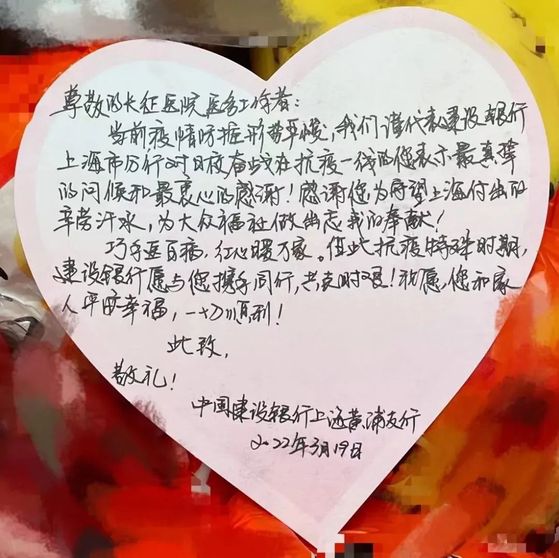 尊敬的长征医院医务工作者：
当前疫情防控形势严峻，我们谨代表建设银行
上海市分行对日夜奋战在抗疫一线的您表示最真挚
的问候和最衷心的感谢！感谢您为守望上海付出的
辛劳汗水，为大众福祉做出忘我的奉献！
巧手医百病，红心暖万家。值此抗疫特殊时期，
建设银行愿与您携手同行，共克时艰！祝愿您和家
人平安幸福，一切顺利！
此致，
敬礼！
中国建设银行上海黄浦支行
2022年3月19日